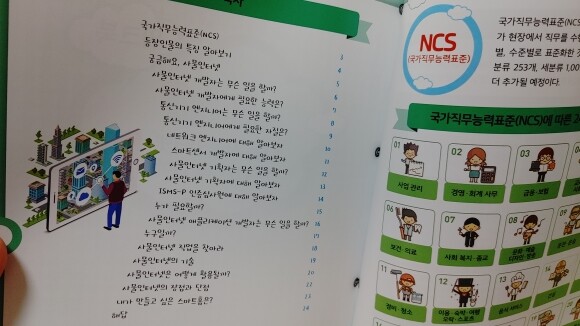 국가직무능력표준(NCS)
등장인물의 특징 알아보기
궁금해요, 사물인터넷
사물인터넷 개발자는 무슨 일을 할까?
사물인터넷 개발자에게 필요한 능력은?
통신기기 엔지니어는 무슨 일을 할까?
통신기기 엔지니어에게 필요한 자질은?
네트워크 엔지니어에 대해 알아보자
스마트센서 개발자에 대해 알아보자
사물인터넷 기획자는 무슨 일을 할까?
사물인터넷 기획자에 대해 알아보자
ISMS-P 인증심사원에 대해 알아보자
누가 필요할까?
사물인터넷 애플리케이션 개발자는 무슨 일을 할까?
누구일까?
사물인터넷 직업을 찾아라
사물인터넷의 기술
사물인터넷은 어떻게 활용될까?
사물인터넷의 장점과 단점
내가 만들고 싶은 스마트홈은?
해답
3
4
5
6
7
8
9
10
11
12
13
14
15
16
17
18
19
20
22
23
24
NCS
(국가직무능력표준)
국가직무능력표준(NCS
가 현장에서 직무를 수
별, 수준별로 표준화한 것
분류 253개, 세분류 1,00
더 추가될 예정이다.
국가직무능력표준(NCS)에 따른 2
01
사업 관리
02
경영·회계·사무
03
금융·보험
06
보건·의료
07
사회 복지·종교
08
문화·예술
디자인·방송
09
11
경비·청소
12
이용·숙박·여행
오락·스포츠
13
음식 서비스
14